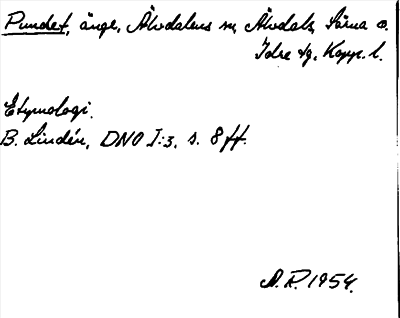 Pundet, änge, Älvdalens sn, Älvdals, Särna o.
Idre tg. Kopp. l.
Etymologi.
B. Lindén, DNO I:3, s. 8 ff.
A.R. 1954.